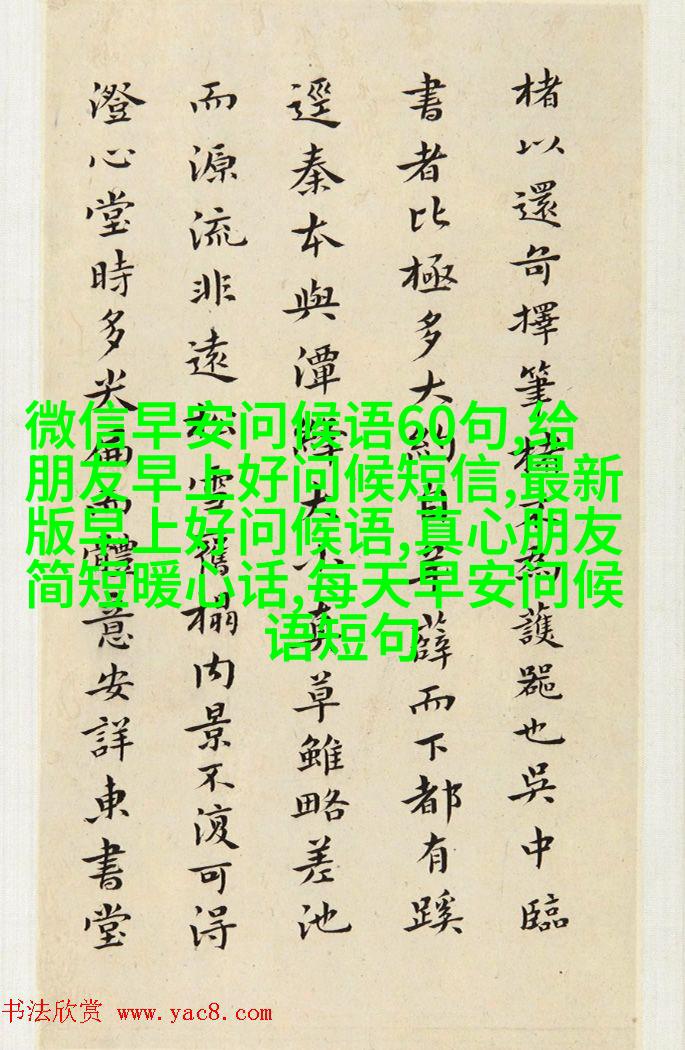 楮以還擇筆不為護器也吳中臨
書者比極多大約羊薛而下都有蹊
逕秦本與潭絳大小真草雖略差池
而源流非遠雪舊榻內景不復可得
澄心堂時多而體意安詳東書堂
微信早安问候语60句,给
朋友早上好问候短信,最新
版早上好问候语,真心朋友
简短暖心话,每天早安问候
语短句
书法欣赏 www.yac8.com